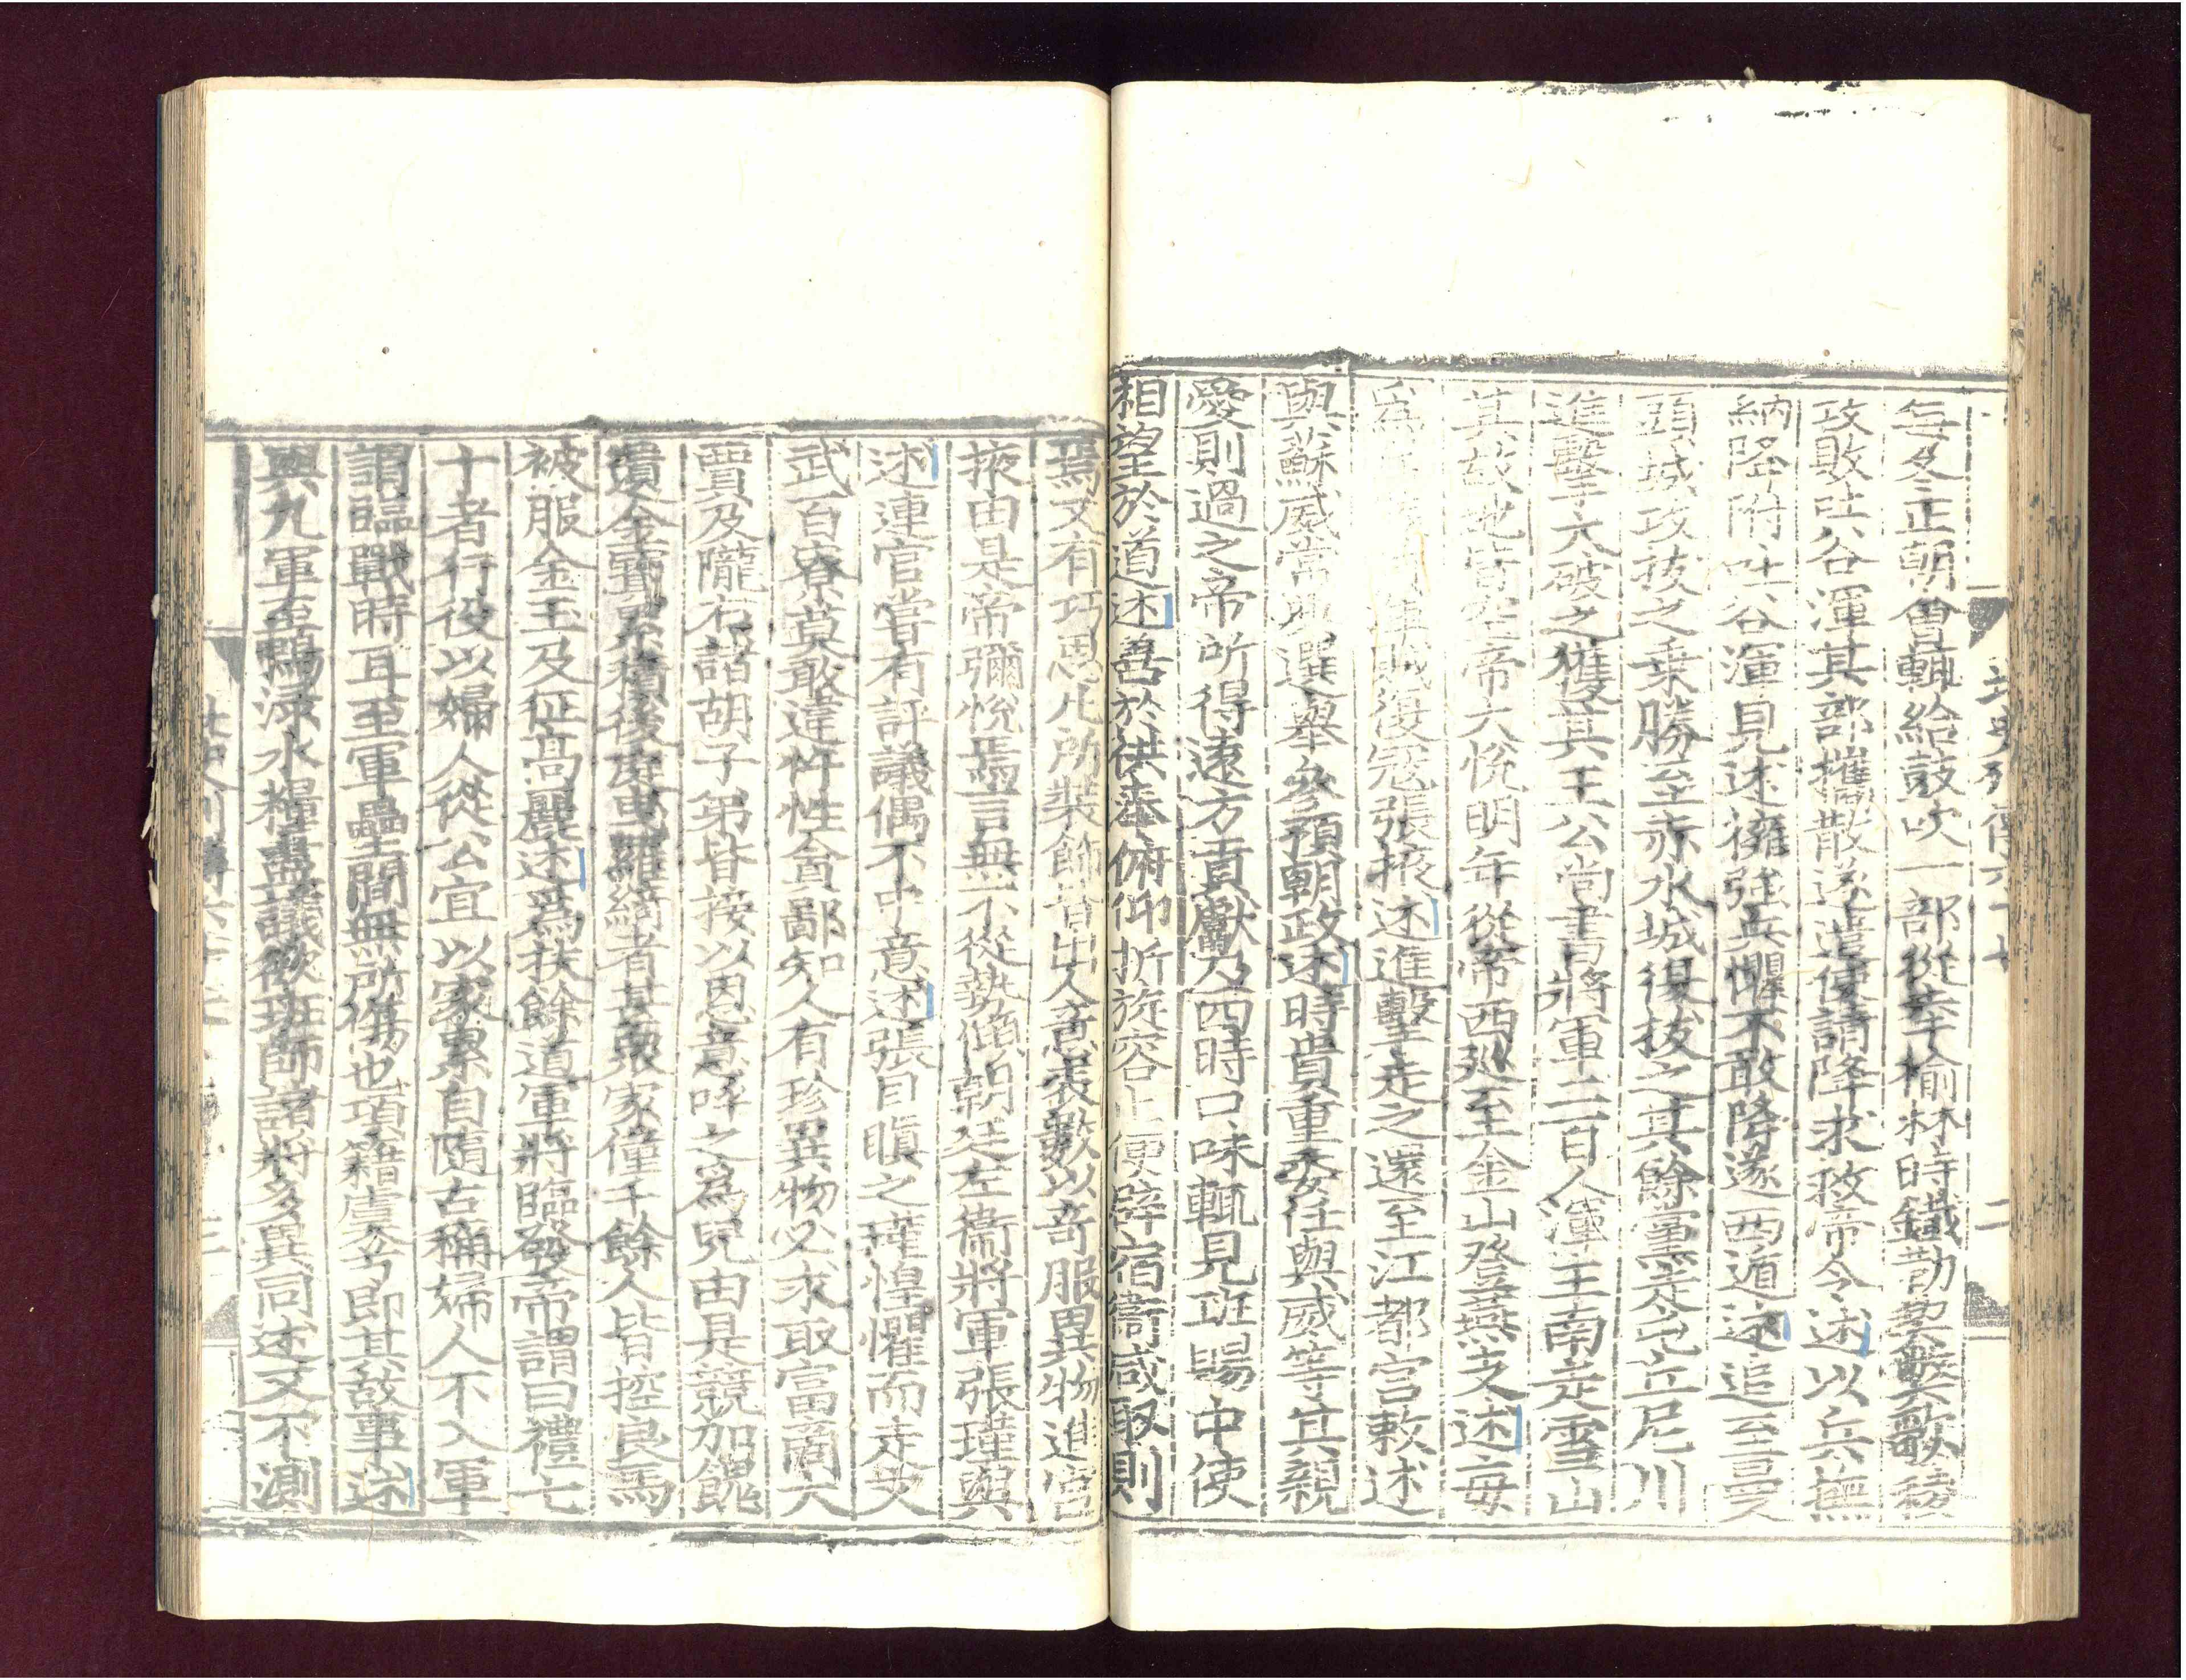 北史列傳六十七
二
每冬正朝會輒給鼓吹一部從幸榆林時鐵勒契弊歌稜
攻敗吐谷渾其部攜散遂遣使請降求救帝令述以兵撫
納降附吐谷渾見述擁強兵懼不敢降遂西遁述追至曼
頭城攻拔之乘勝至赤水城復拔之其餘黨走屯丘尼川
進擊大破之獲其王公尚書將軍二百人渾主南走雪山
其故地皆空帝大悅明年從帝西巡至金山登燕支述每
爲 賊復寇張掖述進擊走之還至江都宮敕述
與蘇威常典選舉參預朝政述時貴重委任與威等其親
愛則過之帝所得遠方貢獻及四時口味輒見班賜中使
相望於道述善於供奉俯仰折旋容止便辟宿衛咸取則
焉又有巧思凡所裝飾皆出人意表數以奇服異物進宮
掖由是帝彌悅焉言無不從勢傾朝廷左衞將軍張瑾與
述連官嘗有評議偶不中意述張目瞋之瑾惶懼而走文
武百寮莫敢違忤性貪鄙知人有珍異物必求取富商大
賈及隴右諸胡子弟皆接以恩意呼之爲兒由是競加餽
遺金寶累積後庭曳羅綺者甚衆家僮千餘人皆控良馬
被服金玉及征高麗述爲扶餘道軍將臨發帝謂曰禮七
十者行役以婦人從公宜以家累自隨古稱婦人不入軍
謂臨戰時耳至軍壘間無所傷也項籍虞兮即其故事述
與九軍至鴨渌水糧盡議欲班師諸將多異同述又不測
北史列傳六十七
三